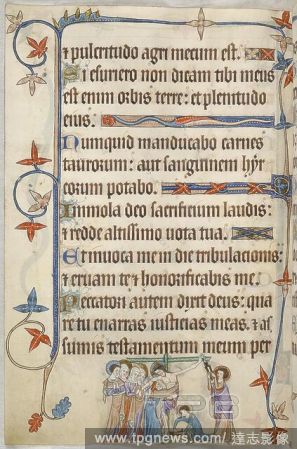 ⁊ pulcritudo agri mecum est.
Si esuriero non dicam tibi meus
est enim orbis terre: et plenitudo
eius.
Numquid manducabo carnes
taurorum: aut sanguinem hyr
corum potabo.
Immola deo sacrificium laudis:
⁊ redde altissimo uota tua.
Et inuoca me in die tribulacionis:
⁊ eruam te ⁊ honorificabis me.
Peccatori autem dixit deus: qua
re tu enarras iusticias meas. ⁊ as
sumis testamentum meum per
www.tpgnews.com / 達志影像